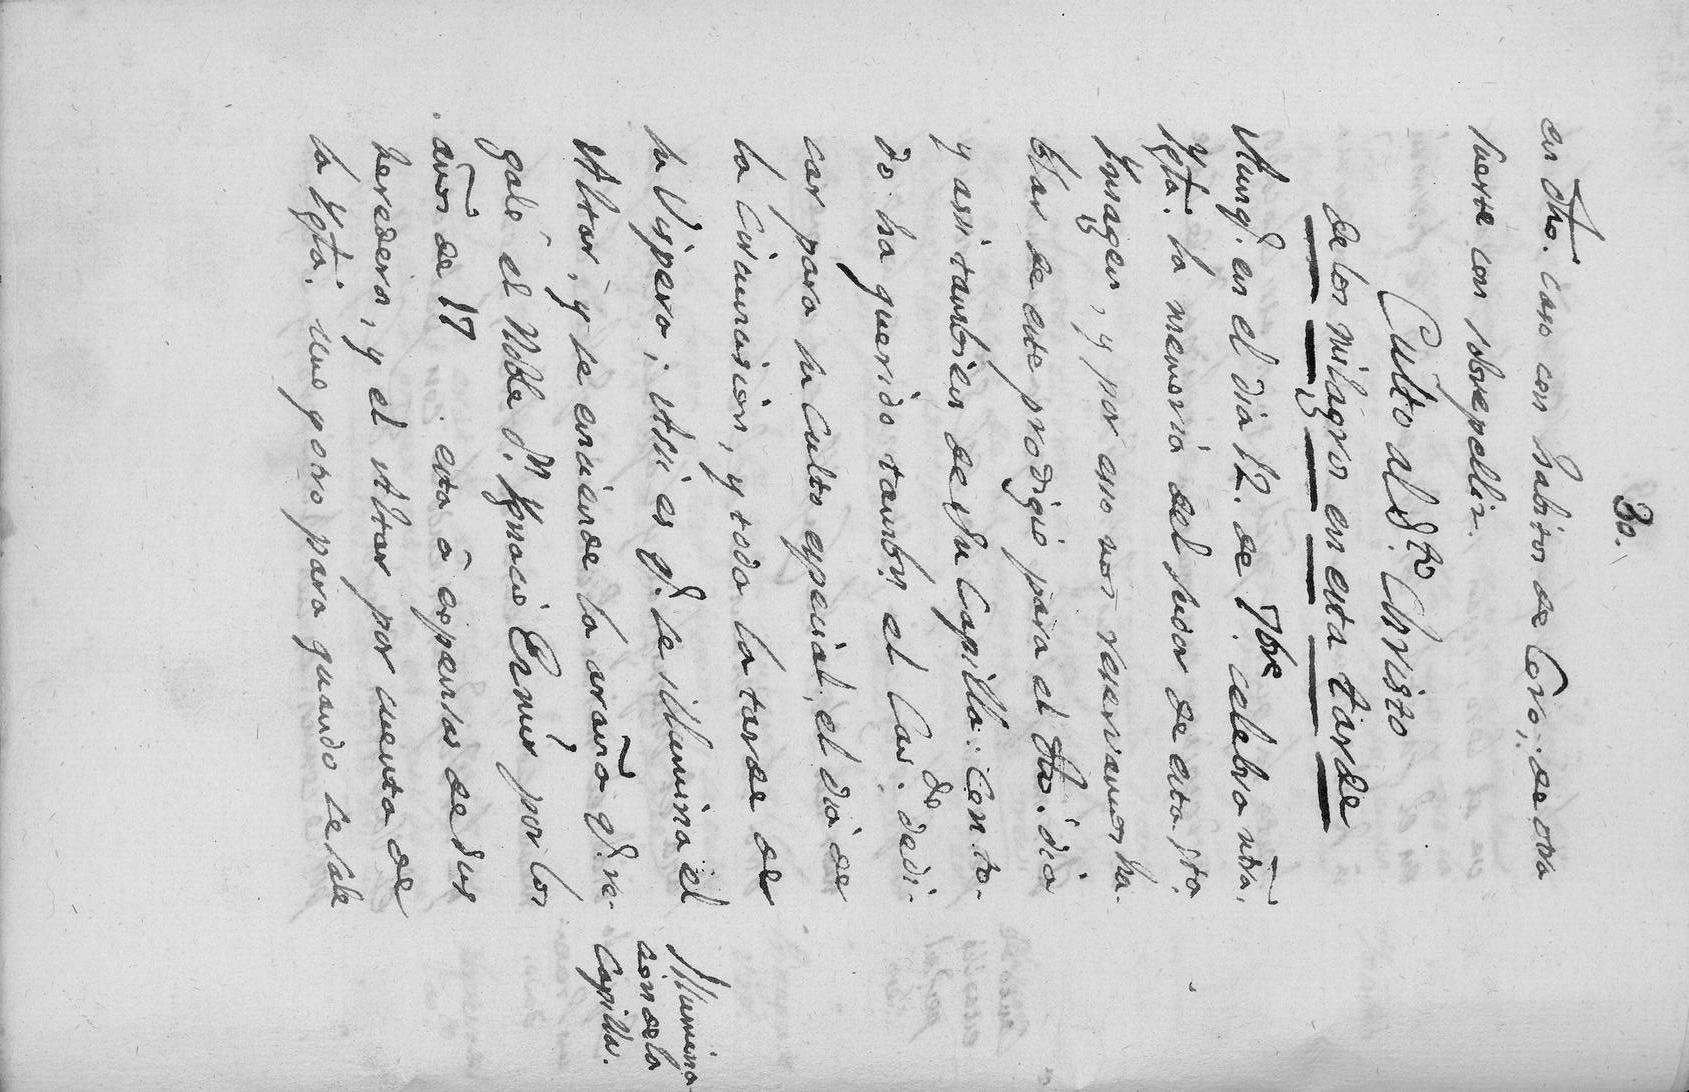 30.
en dho. caso con habitos de Coro; de otra
suerte con sobrepelliz.
Culto al S.to Christo
de los milagros en esta tarde
Aunq.e en el dia 12. de 7bre. celebra ntra.
Ygla. la memoria del sudor de esta Sta.
Ymagen, y por eso nos reservamos ha-
blar de este prodigio para el dho. dia
y assi tambien de su Capilla: Con to-
do ha querido tambn. el Cav.do dedi-
car para su Culto especial, el dia de
la Circuncision, y toda la tarde de
su Vispera; Assi es q.e se illumina el
Altar, y se enciende la araña q.e re-
galó el Noble d.n Ygnacio
por los
años de 17 . esta á expensas de sus
herederos, y el Altar por cuenta de
la Ygla. que
para quando le sale
Illumina-
cion de la
Capilla.